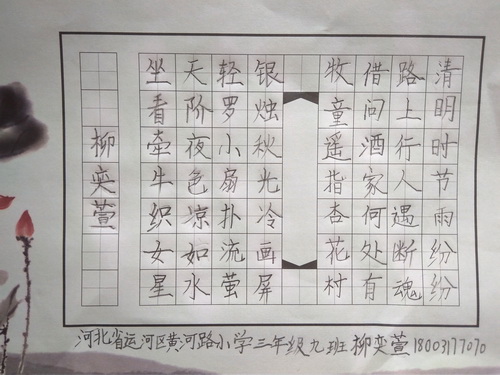 清明时节雨纷纷
路上行人遇断魂
借问酒家何处有
牧童遥指杏花村
银烛秋光冷画屏
轻罗小扇扑流萤
天阶夜色凉如水
坐看牵牛织女星
柳奕萱
河北省运河区黄河路小学三年级九班柳奕萱18003177070